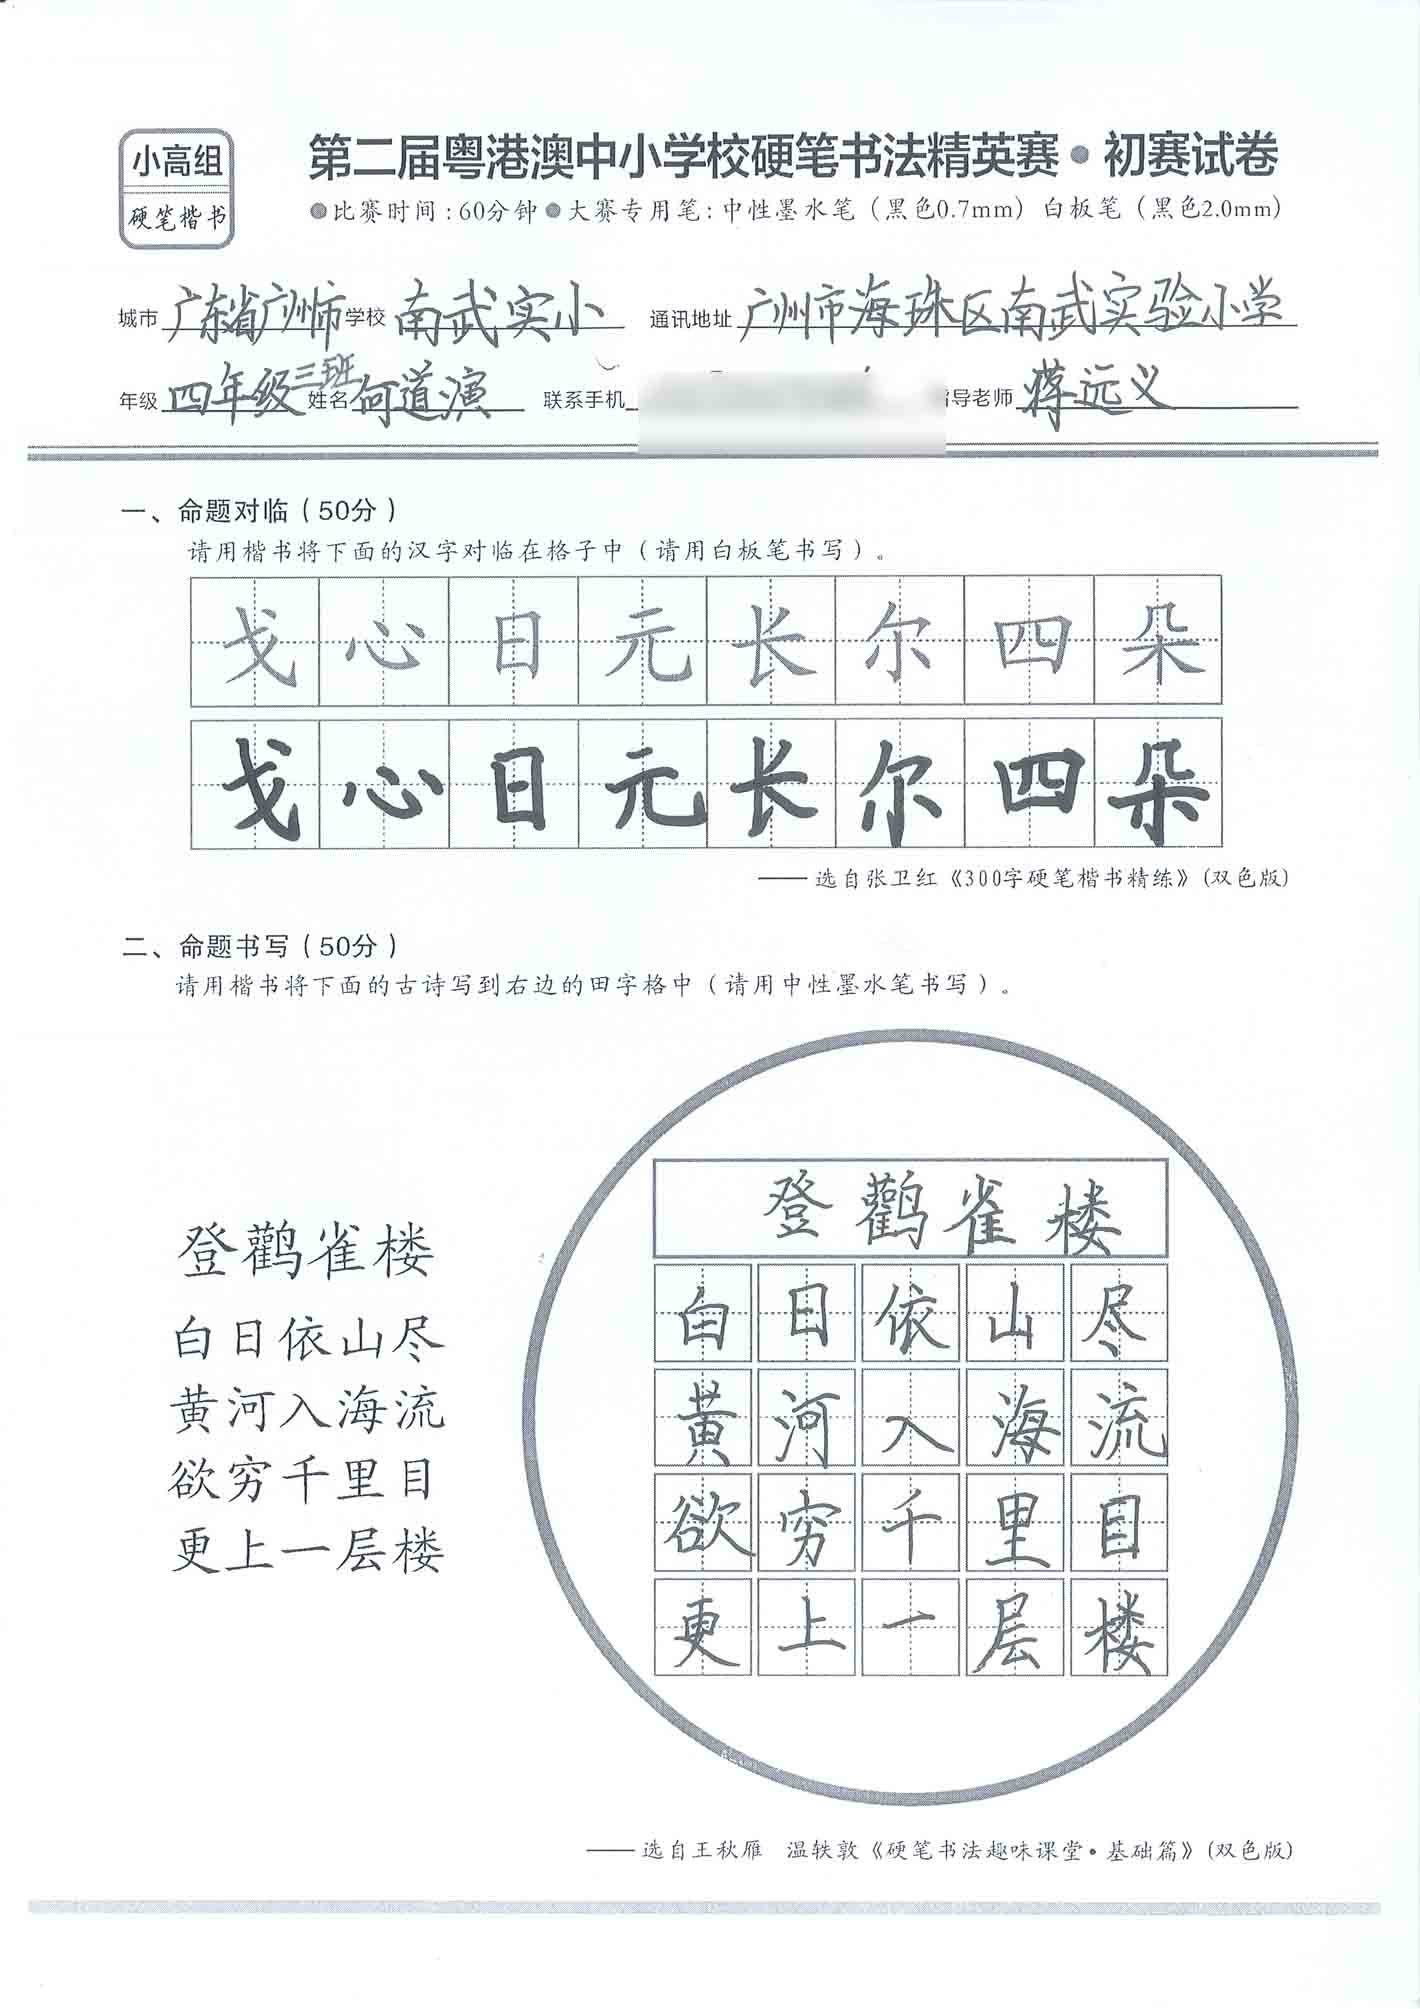 小高组
硬笔楷书
第二届粤港澳中小学校硬笔书法精英赛•初赛试卷
●比赛时间:60分钟●大赛专用笔:中性墨水笔（黑色0.7mm）白板笔（黑色2.0mm）
城市 广东省广州市 学校 南武实小 通讯地址 广州市海珠区南武实验小学
年级 四年级三班 姓名 何道演 联系手机 指导老师 蒋远义
一、命题对临（50分）
请用楷书将下面的汉字对临在格子中（请用白板笔书写）。
戈心日元长尔四朵
戈心日元长尔四朵
——选自张卫红《300字硬笔楷书精练》(双色版)
二、命题书写（50分）
请用楷书将下面的古诗写到右边的田字格中（请用中性墨水笔书写）。
登鹳雀楼
白日依山尽
黄河入海流
欲穷千里目
更上一层楼
登鹳雀楼
白日依山尽
黄河入海流
欲穷千里目
更上一层楼
——选自王秋雁 温轶敦《硬笔书法趣味课堂•基础篇》(双色版)